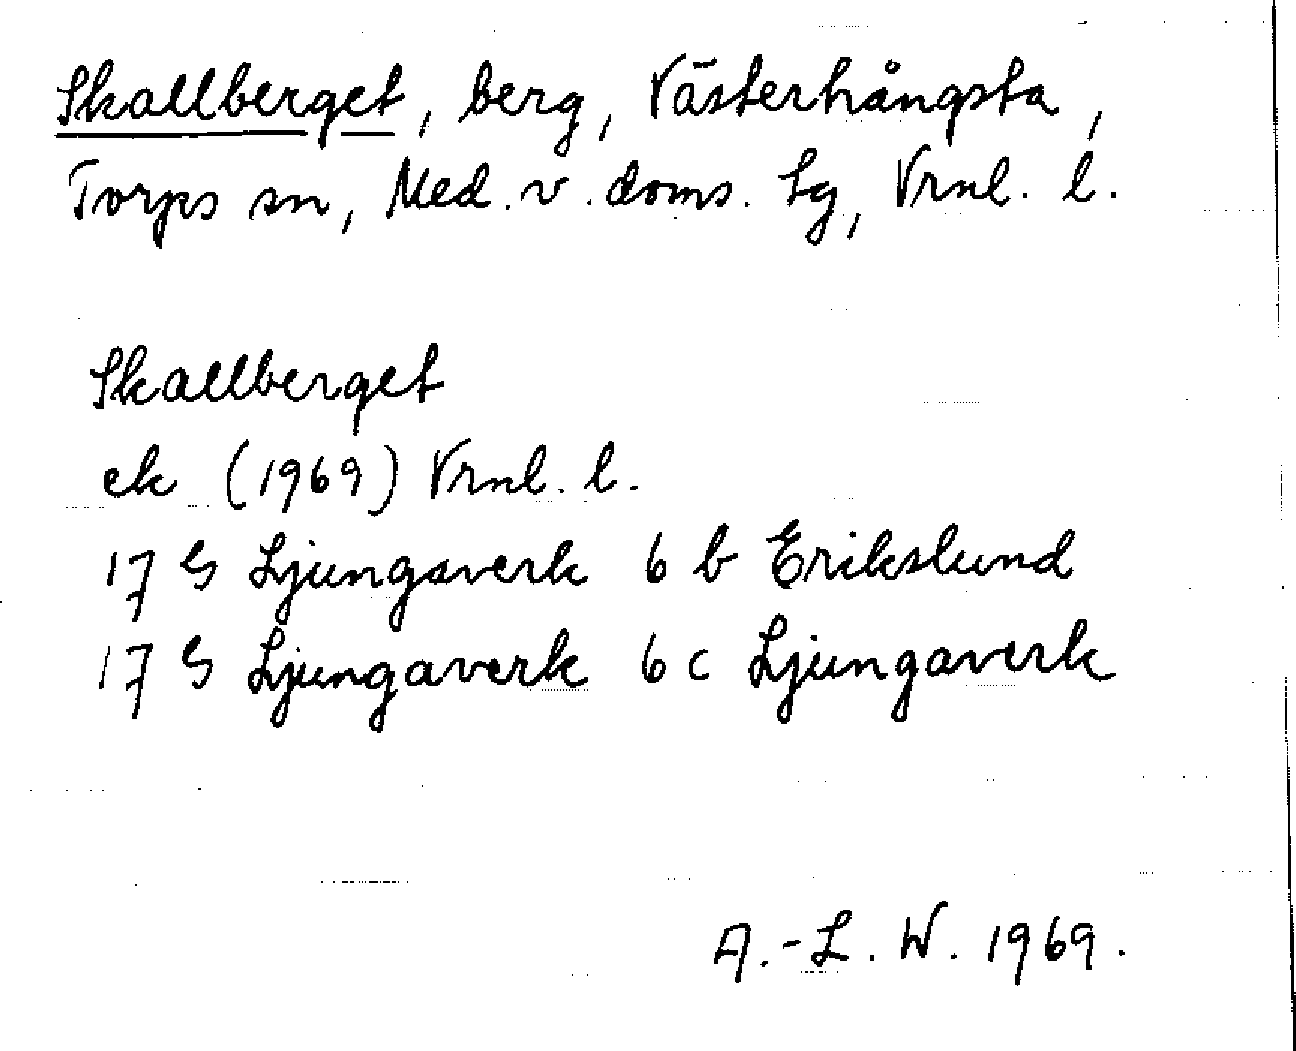 Skallberget, berg, Västerhångsta,
Torps sn, Med. v. doms. tg, Vrnl. l.
Skallberget
ek (1969) Vrnl. l.
17 G Ljungaverk 6 b Erikslund
17 G Ljungaverk 6 c Ljungaverk
A.-L. W. 1969.